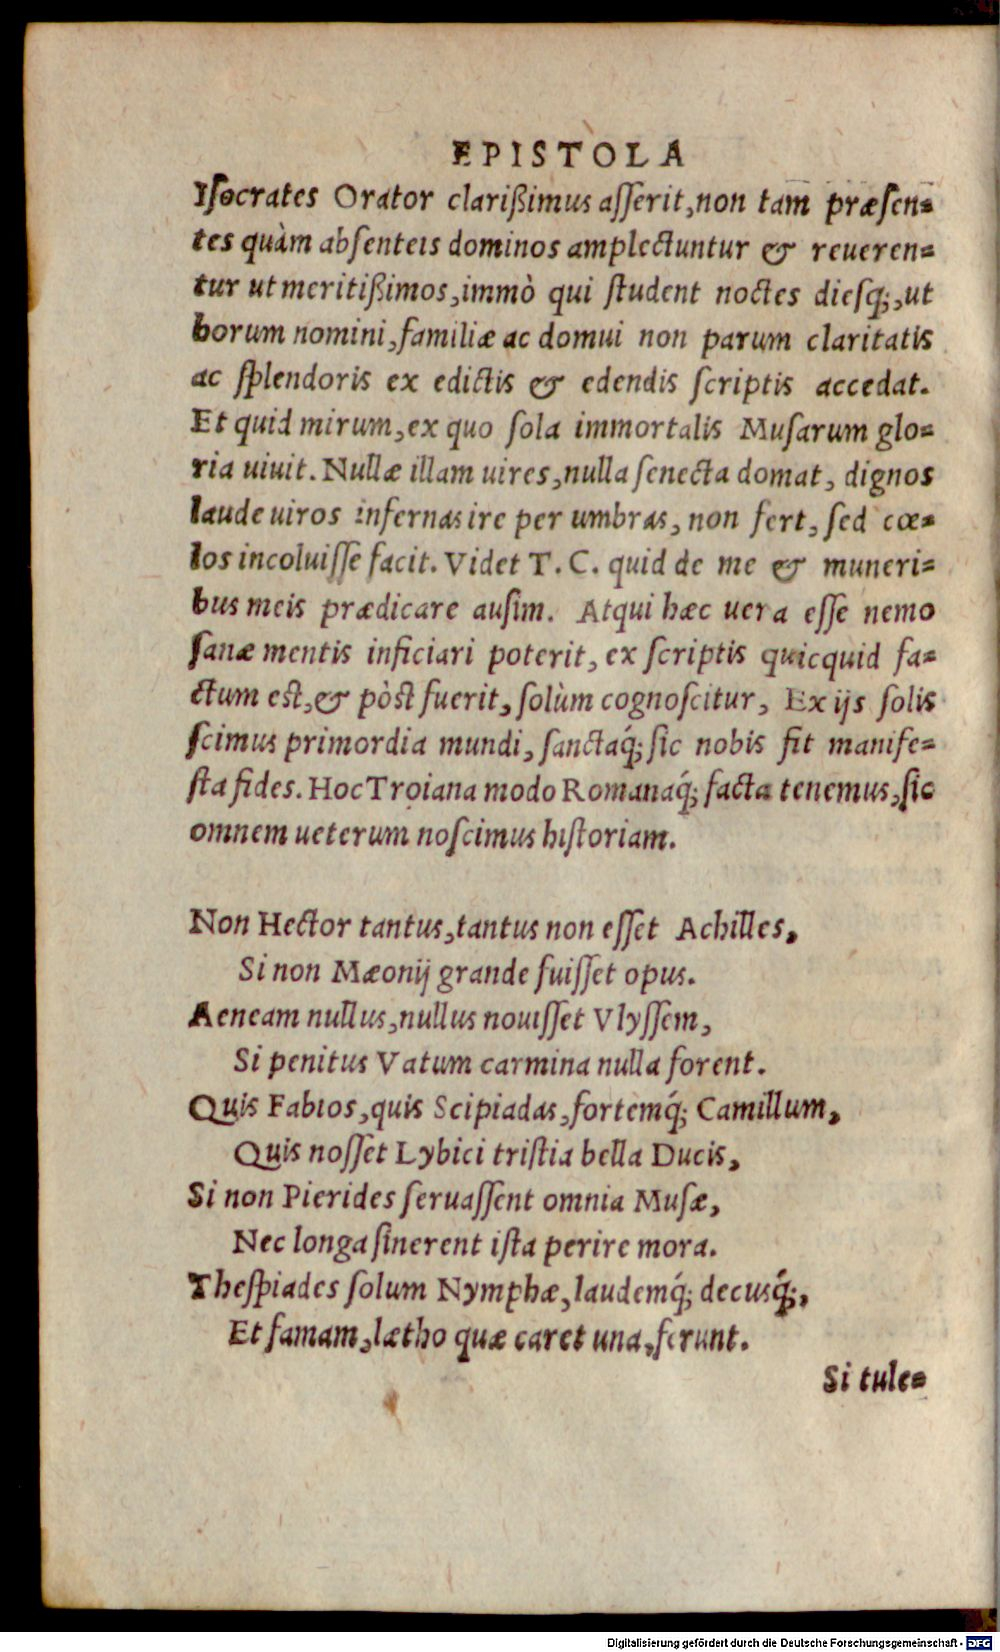 EPISTOLA
Iſocrates Orator clarißimus aſſerit, non tam præſen=
tes quàm abſenteis dominos amplectuntur & reueren=
tur ut meritißimos, immò qui ſtudent noctes dieſq́;, ut
horum nomini, familiæ ac domui non parum claritatis
ac ſplendoris ex edictis & edendis ſcriptis accedat.
Et quid mirum, ex quo ſola immortalis Muſarum glo=
ria uiuit. Nullæ illam uires, nulla ſenecta domat, dignos
laude uiros infernas ire per umbras, non fert, ſed cœ=
los incoluiſſe facit. Videt T. C. quid de me & muneri=
bus meis prædicare auſim. Atqui hæc uera eſſe nemo
ſanæ mentis inficiari poterit, ex ſcriptis quicquid fa=
ctum eſt, & pòſt fuerit, ſolùm cognoſcitur, Ex ijs ſolis
ſcimus primordia mundi, ſanctaq́; ſic nobis fit manife=
ſta fides. Hoc Troiana modo Romanaq́; facta tenemus, ſic
omnem ueterum noſcimus hiſtoriam.
Non Hector tantus, tantus non eſſet Achilles,
Si non Mæonij grande fuiſſet opus.
Aeneam nullus, nullus nouiſſet Vlyſſem,
Si penitus Vatum carmina nulla forent.
Quis Fabios, quis Scipiadas, fortemq́; Camillum,
Quis noſſet Lybici triſtia bella Ducis,
Si non Pierides ſeruaſſent omnia Muſæ,
Nec longa ſinerent iſta perire mora.
Theſpiades ſolum Nymphæ, laudemq́; decusq́;,
Et famam, lætho quæ caret una, ferunt.
Si tule=
Digitalisierung gefördert durch die Deutsche Forschungsgemeinschaft - DFG